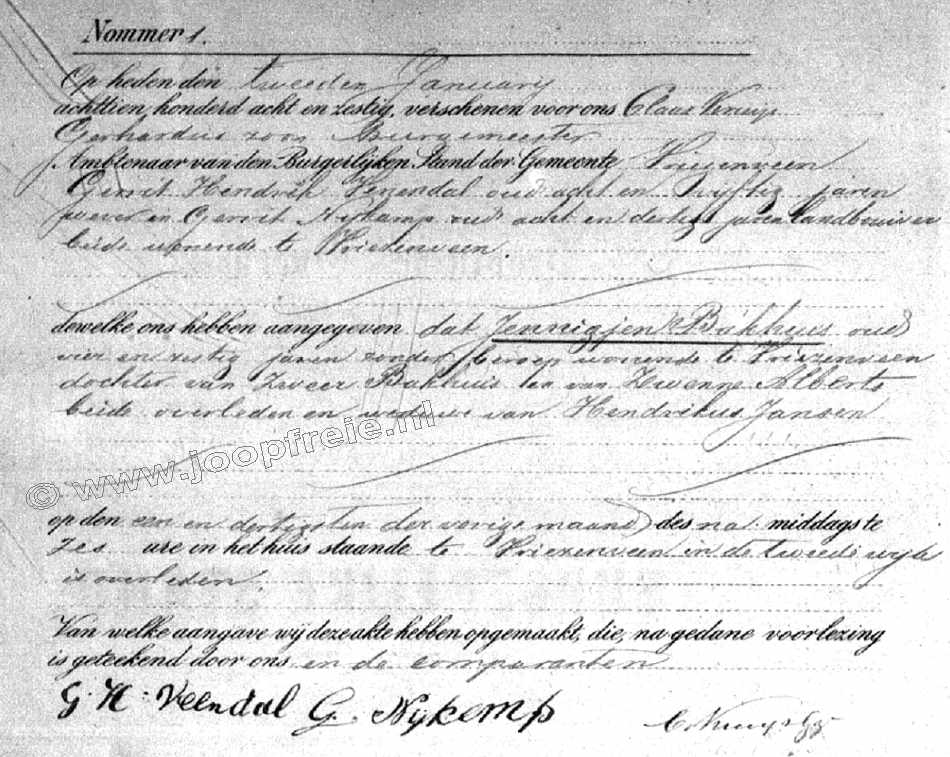 Nommer 1.
Op heden den tweeden January
achttien honderd acht en zestig, verschenen voor ons Claas Kruijs
Gerhardus zoon Burgemeester
Ambtenaar van den Burgerlijken Stand der Gemeente Vriezenveen
Gerrit Hendrik Veendal oud acht en vyftig jaren
wever en Gerrit Nykamp oud acht en dertig jaren landbouwer
beide wonende te Vriezenveen
dewelke ons hebben aangegeven dat Jennigjen Bakhuis oud
vier en zestig jaren zonder beroep wonende te Vriezenveen
dochter van Zweer Bakhuis en van Zwenne Alberts
beide overleden en weduwe van Hendrikus Jansen
© www.joopfreie.nl
op den een en dertigsten der vorige maand des na middags te
zes ure in het huis staande te Vriezenveen in de tweede wyk
is overleden.
Van welke aangave wij deze akte hebben opgemaakt, die, na gedane voorlezing
is geteekend door ons en de comparanten
G. H. Veendal G. Nykemp C. Kruys Gz